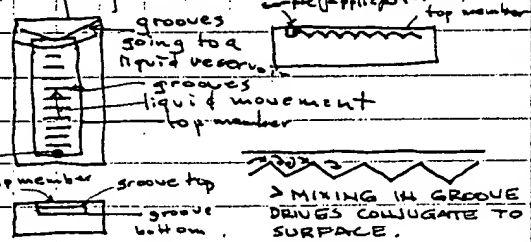 grooves
going to a
liquid reservoir
grooves
liquid movement
top member
top member
top member
groove top
groove
bottom.
> MIXING IN GROOVE
DRIVES CONJUGATE TO
SURFACE.